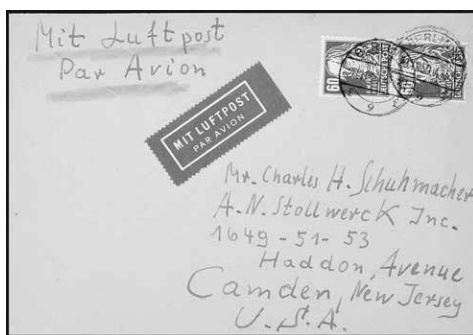 Mit Luftpost
Par Avion
MIT LUFTPOST
PAR AVION
60
DEUTSCHE POST
BERLIN
Mr. Charlis H. Schuhmacher
A.N. Stollwerck Inc.
1649-51-53
Haddon, Avenue
Camden, New Jersey
U.S.A.